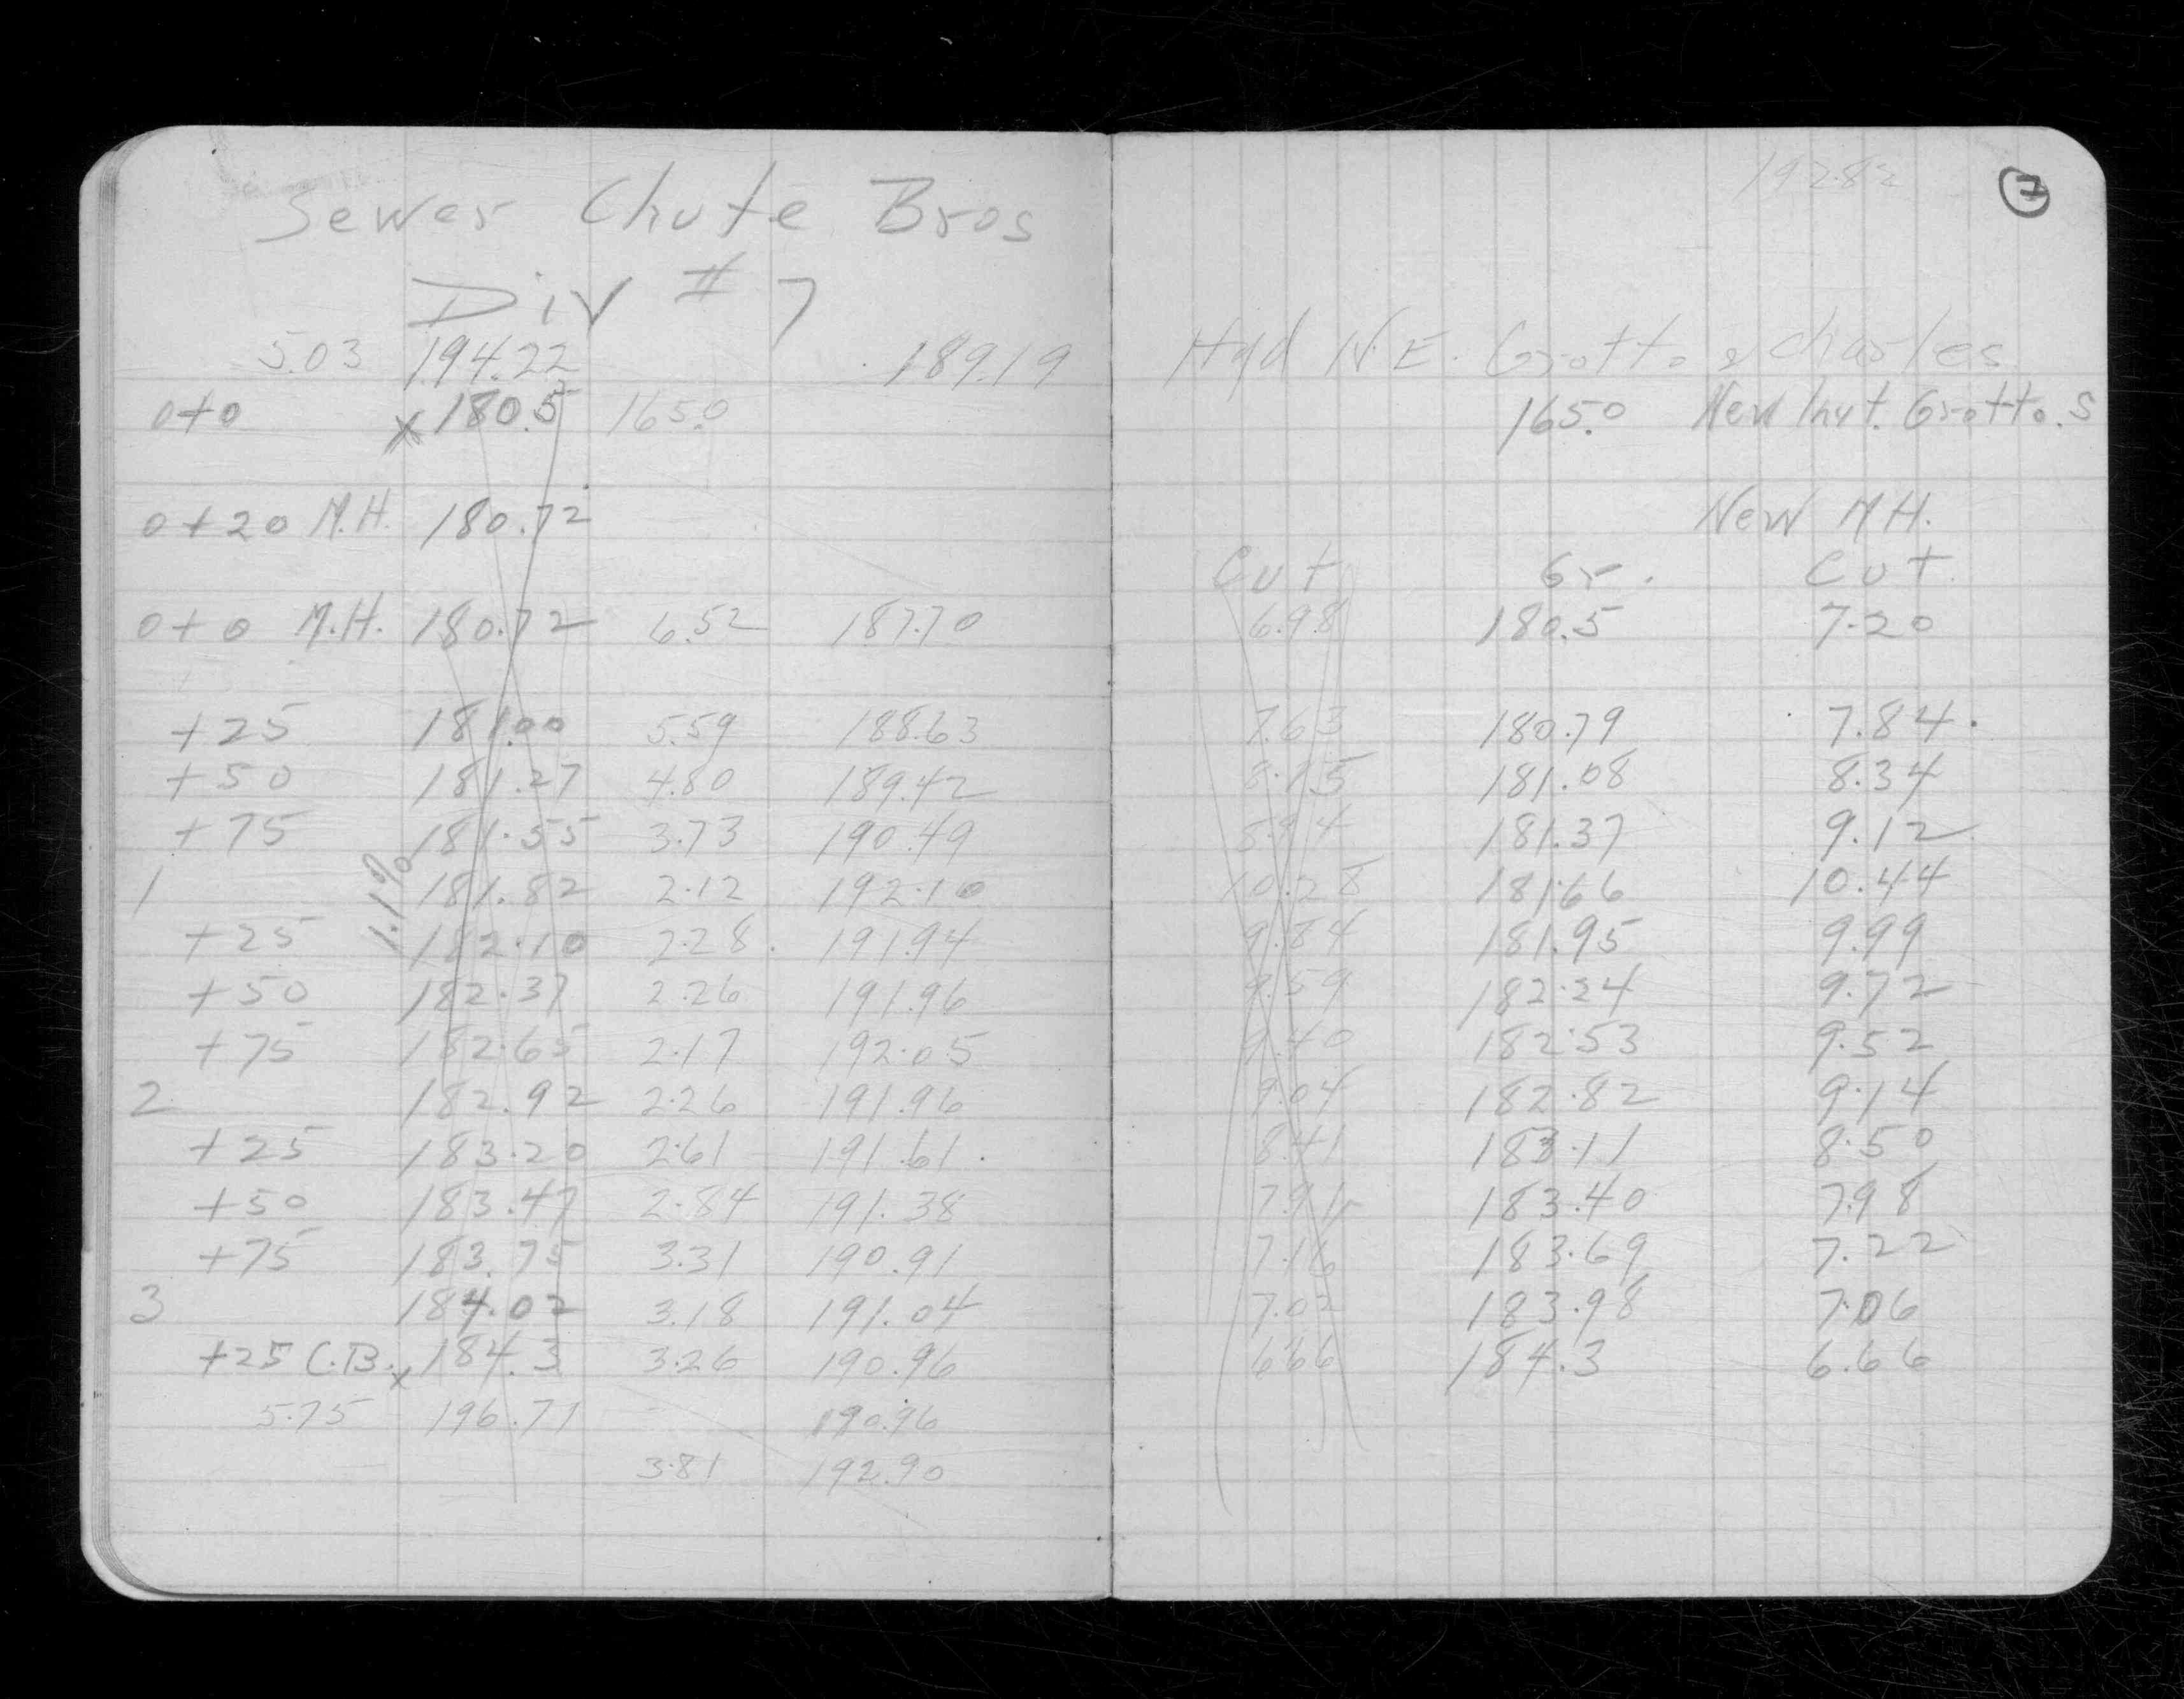 192.82 7
Sewer Chute Bros
Div # 7
5.03 194.22 189.19 Hyd N.E. Grotto & Charles
0+0 x 180.5 165.0 165.0 New Inv. Grotto. S
0+20 M.H. 180.72 New M.H.
Cut Gr. Cut
0+0 M.H. 180.72 6.52 187.70 6.98 180.5 7.20
+25 181.00 5.59 188.63 7.63 180.79 7.84
+50 181.27 4.80 189.42 8.15 181.08 8.34
+75 181.55 3.73 190.49 8.94 181.37 9.12
1 1.1% 181.82 2.12 192.10 10.28 181.66 10.44
+25 182.10 2.28 191.94 9.84 181.95 9.99
+50 182.37 2.26 191.96 9.59 182.24 9.72
+75 182.65 2.17 192.05 9.40 182.53 9.52
2 182.92 2.26 191.96 9.04 182.82 9.14
+25 183.20 2.61 191.61 8.41 183.11 8.50
+50 183.47 2.84 191.38 7.91 183.40 7.98
+75 183.75 3.31 190.91 7.16 183.69 7.22
3 184.02 3.18 191.04 7.02 183.98 7.06
+25 C.B. x 184.3 3.26 190.96 6.66 184.3 6.66
5.75 196.71 190.96
3.81 192.90